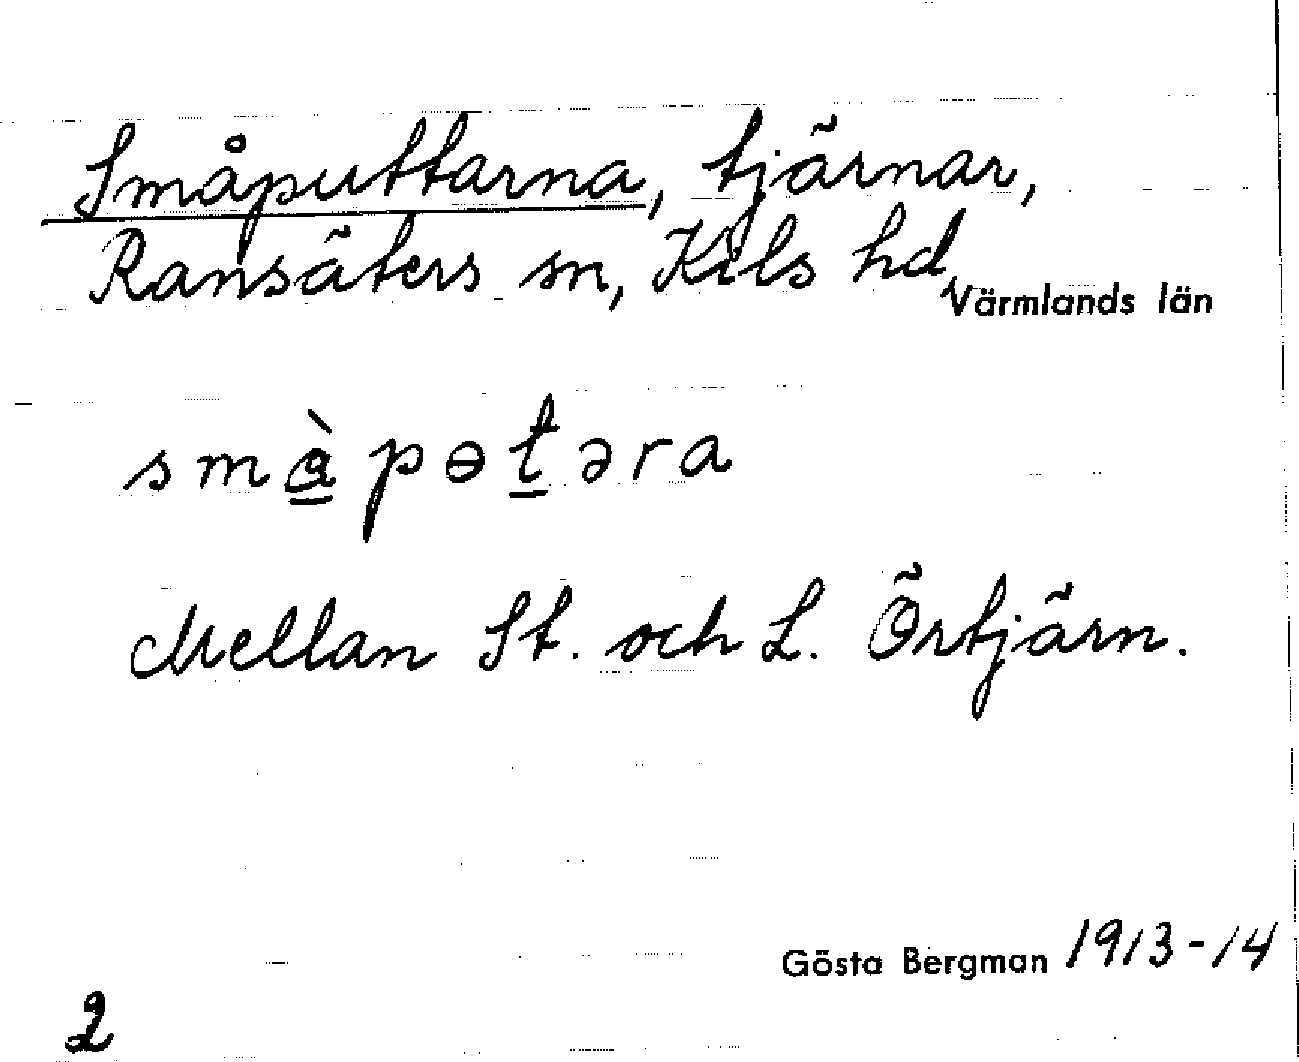 Småputtarna, tjärnar,
Ransäters sn, Kils hd
Värmlands län
smạ̱̀pɵṯəra
Mellan St. och L. Örtjärn.
Gösta Bergman 1913-14
2